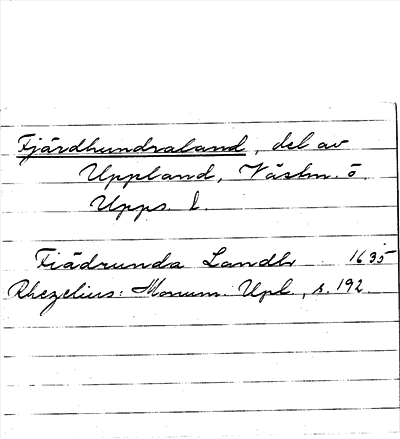 Fjärdhundraland, del av
Uppland, Västm. o.
Upps. l.
Fiädrunda Landh 1635
Rhezelius: Monum. Upl., s. 192.